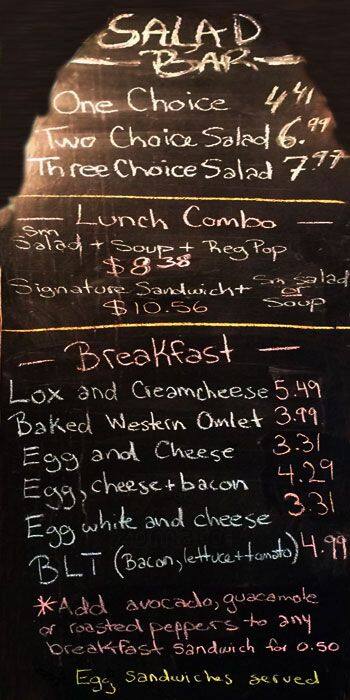 SALAD
BAR
One Choice 4.41
Two Choice Salad 6.99
Three Choice Salad 7.97
— Lunch Combo —
Sm Salad + Soup + Reg Pop
$8.38
Signature Sandwich + Sm salad or Soup
$10.56
— Breakfast —
Lox and Creamcheese 5.49
Baked Western Omlet 3.99
Egg and Cheese 3.31
Egg, cheese + bacon 4.29
Egg white and cheese 3.31
BLT (Bacon, lettuce + tomato) 4.99
*Add avocado, guacamole
or roasted peppers to any
breakfast sandwich for 0.50
Egg sandwiches served